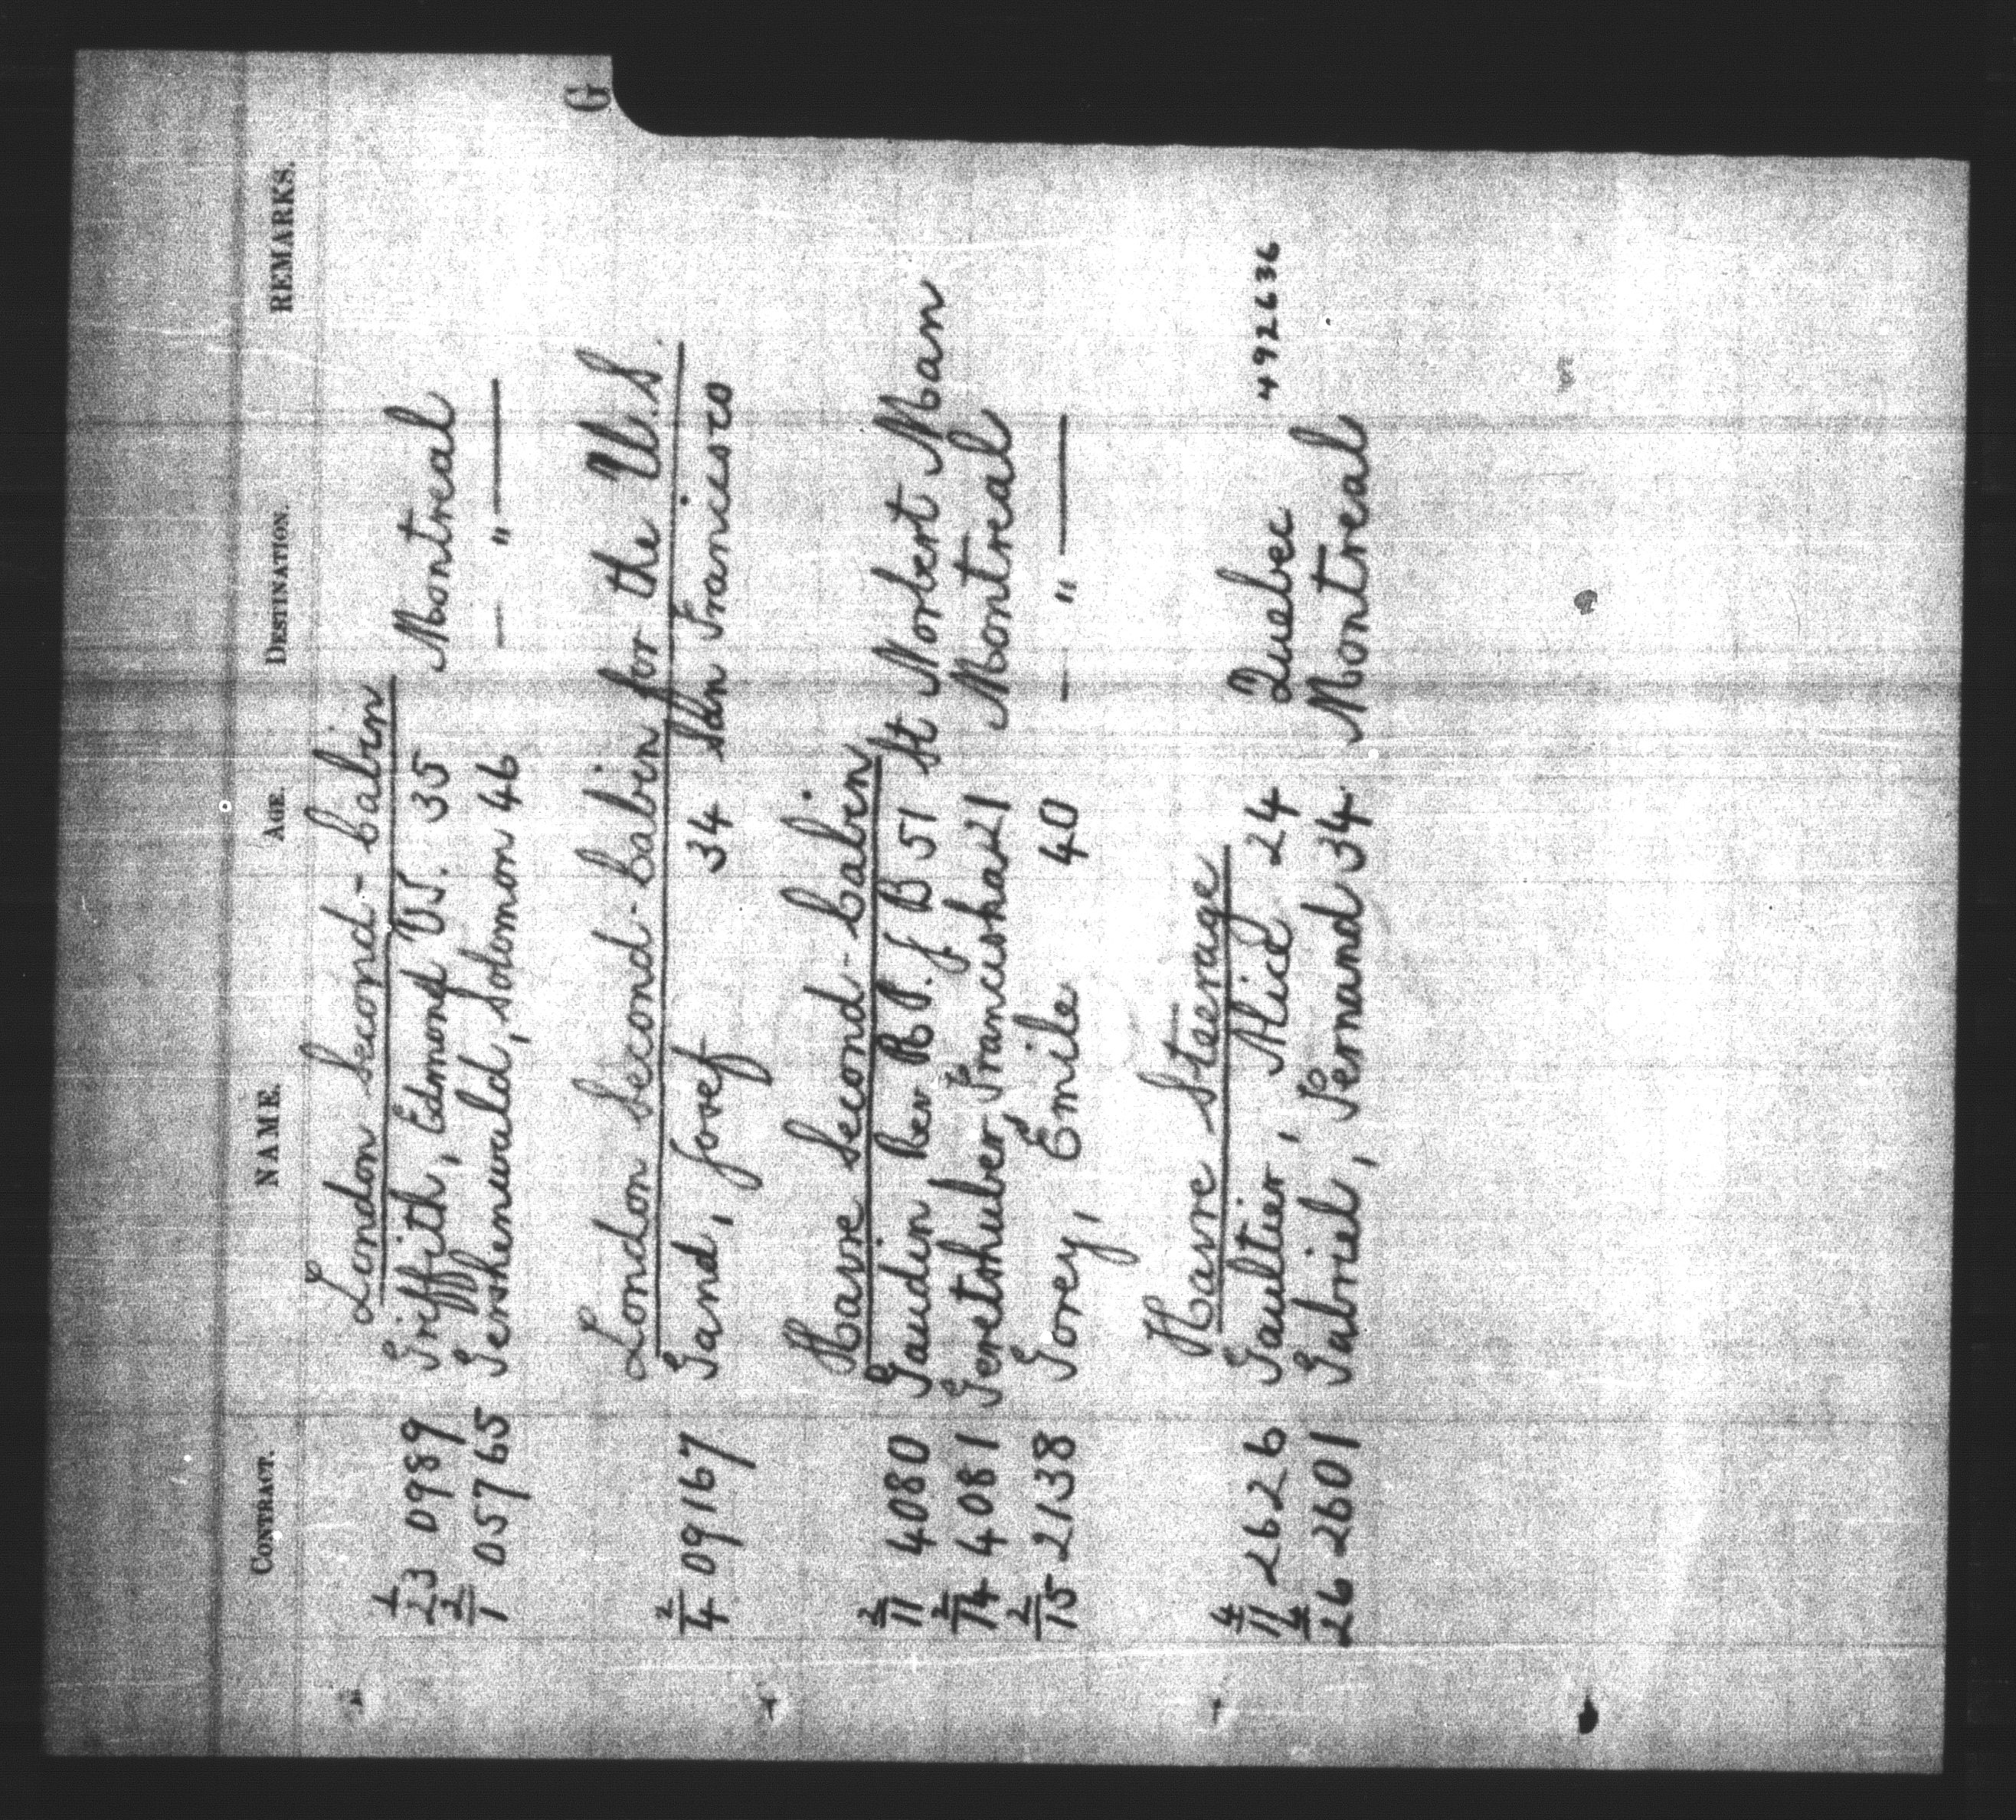 G
CONTRACT. NAME. AGE. DESTINATION. REMARKS.
London Second-Cabin
2/23 0989 Griffith, Edmond W. 35 Montreal
2/1 05765 Gershenwald, Solomon 46 — " —
London Second-Cabin for the U.S.
2/4 09167 Gand, Josef 34 San Francisco
Havre Second-Cabin
2/11 4080 Gaudin Rev R P. J B 51 St Norbert Man
2/14 4081 Geretshuber, Franciska 21 Montreal
2/15 2138 Gorey, Emile 40 — " —
Havre Steerage
4/11 2626 Gaultier, Alice 24 Quebec 492636
4/26 2601 Gabriel, Fernand 34 Montreal